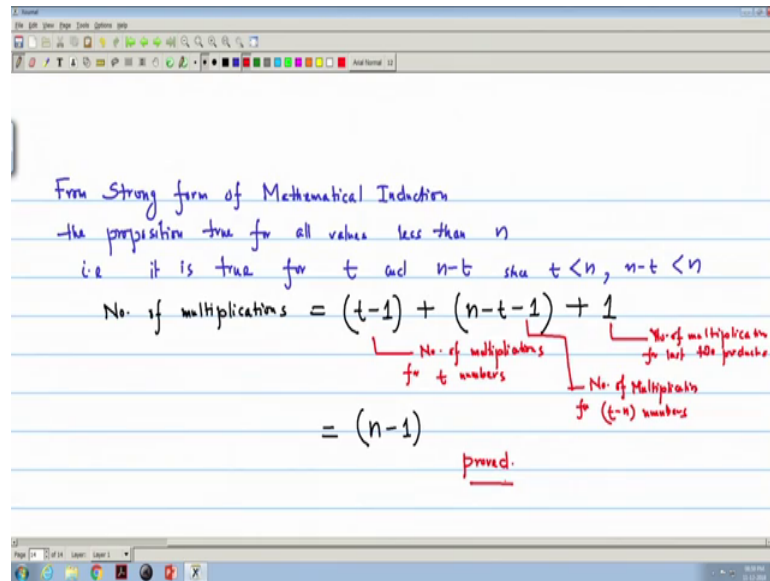 Journal
File Edit View Page Tools Options Help
Arial Normal 12
From Strong form of Mathematical Induction
the proposition true for all values less than n
i.e it is true for t and n-t since t < n, n-t < n
No. of multiplications = (t-1) + (n-t-1) + 1
No. of multiplications
for t numbers
No. of Multiplicatin
for (t-n) numbers
No. of multiplication
for last two products
= (n-1)
proved.
Page 14 of 14 Layer: Layer 1